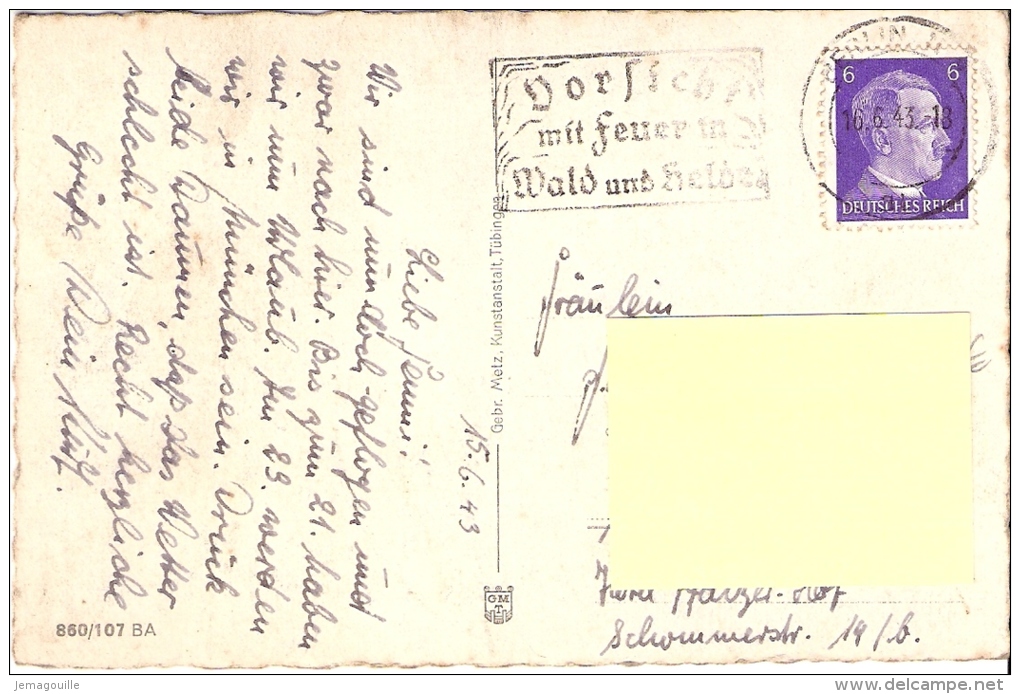 15.6.43
Liebe Fanni!
Wir sind nun doch geflogen und
zwar nach hier. Bis zum 21. haben
wir nun Urlaub. Am 23. werden
wir in München sein. Drück
beide Daumen, daß das Wetter
schlecht ist. Recht herzliche
Grüße Dein
860/107 BA
Gebr. Metz, Kunstanstalt, Tübingen
GMT
Vorsicht
mit Feuer in
Wald und Heide
6 6
16.6.43.-18
DEUTSCHES REICH
Fräulein
Schommerstr. 19/b.
©jemagouille
delcampe.net